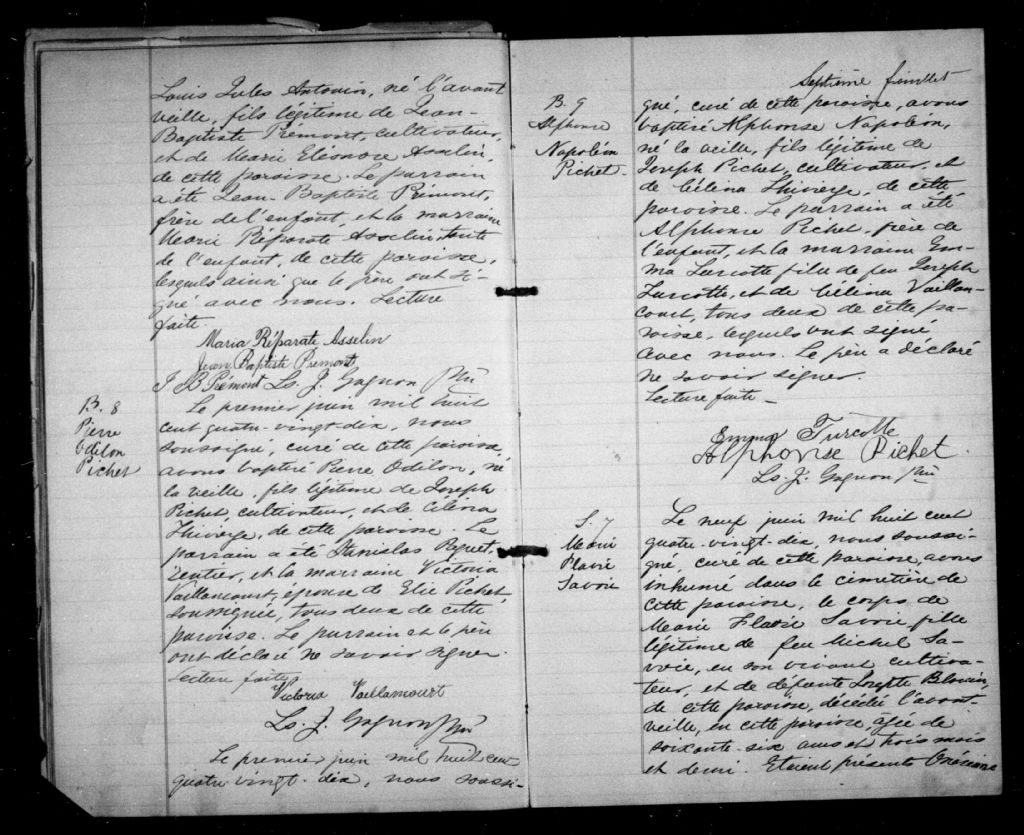 Louis Jules Antonin, né l'avant
veille, fils légitime de Jean-
Baptiste Prémont, cultivateur,
et de Marie Eléonore Asselin,
de cette paroisse. Le parrain
a été Jean-Baptiste Prémont,
frère de l'enfant, et la marraine
Marie Réparate Asselin, tante
de l'enfant, de cette paroisse,
lesquels ainsi que le père ont si-
gné avec nous. Lecture
faite.
Maria Réparate Asselin
Jean Baptiste Premont
J B Prémont Ls. J. Gagnon Ptre
B. 8
Pierre
Odilon
Pichet
Le premier juin mil huit
cent quatre-vingt-dix, nous
soussigné, curé de cette paroisse,
avons baptisé Pierre Odilon, né
la veille, fils légitime de Joseph
Pichet, cultivateur, et de Célina
Thivierge, de cette paroisse. Le
parrain a été Stanislas Paquet,
rentier, et la marraine Victoria
Vaillancourt, épouse de Elie Pichet,
soussignée, tous deux de cette
paroisse. Le parrain et le père
ont déclaré ne savoir signer.
Lecture faite
Victoria Vaillancourt
Ls. J. Gagnon Ptre
Le premier juin mil huit cent
quatre-vingt-dix, nous soussi-
Septième feuillet
B. 9
Alphonse
Napoléon
Pichet
gné, curé de cette paroisse, avons
baptisé Alphonse Napoléon,
né la veille, fils légitime de
Joseph Pichet, cultivateur, et
de Célina Thivierge, de cette
paroisse. Le parrain a été
Alphonse Pichet, frère de
l'enfant, et la marraine Em-
ma Turcotte fille de feu Joseph
Turcotte, et de Célina Vaillan-
court, tous deux de cette pa-
roisse, lesquels ont signé
avec nous. Le père a déclaré
ne savoir signer.
Lecture faite
Emma Turcotte
Alphonse Pichet
Ls. J. Gagnon Ptre
S. 7
Marie
Flavie
Savoie
Le neuf juin mil huit cent
quatre-vingt-dix, nous soussi-
gné, curé de cette paroisse, avons
inhumé dans le cimetière de
cette paroisse, le corps de
Marie Flavie Savoie, fille
légitime de feu Michel Sa-
voie, en son vivant cultiva-
teur, et de défunte Josephte Blouin,
de cette paroisse, décédée l'avant-
veille, en cette paroisse, âgée de
soixante-six ans et trois mois
et demi. Etaient présents Onésime